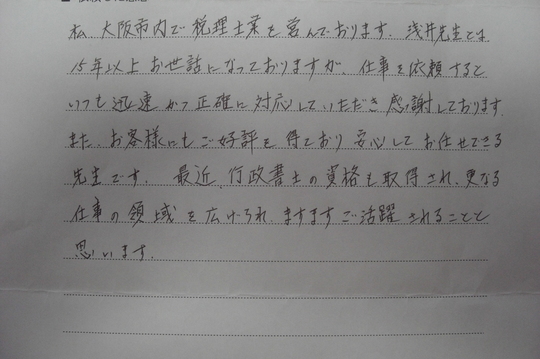 私、大阪市内で税理士業を営んでおります。浅井先生とは
15年以上お世話になっておりますが、仕事を依頼すると
いつも迅速かつ正確に対応していただき感謝しております。
また、お客様にもご好評を得ており安心してお任せできる
先生です。最近、行政書士の資格も取得され、更なる
仕事の領域を広げられ、ますますご活躍されることと
思います。